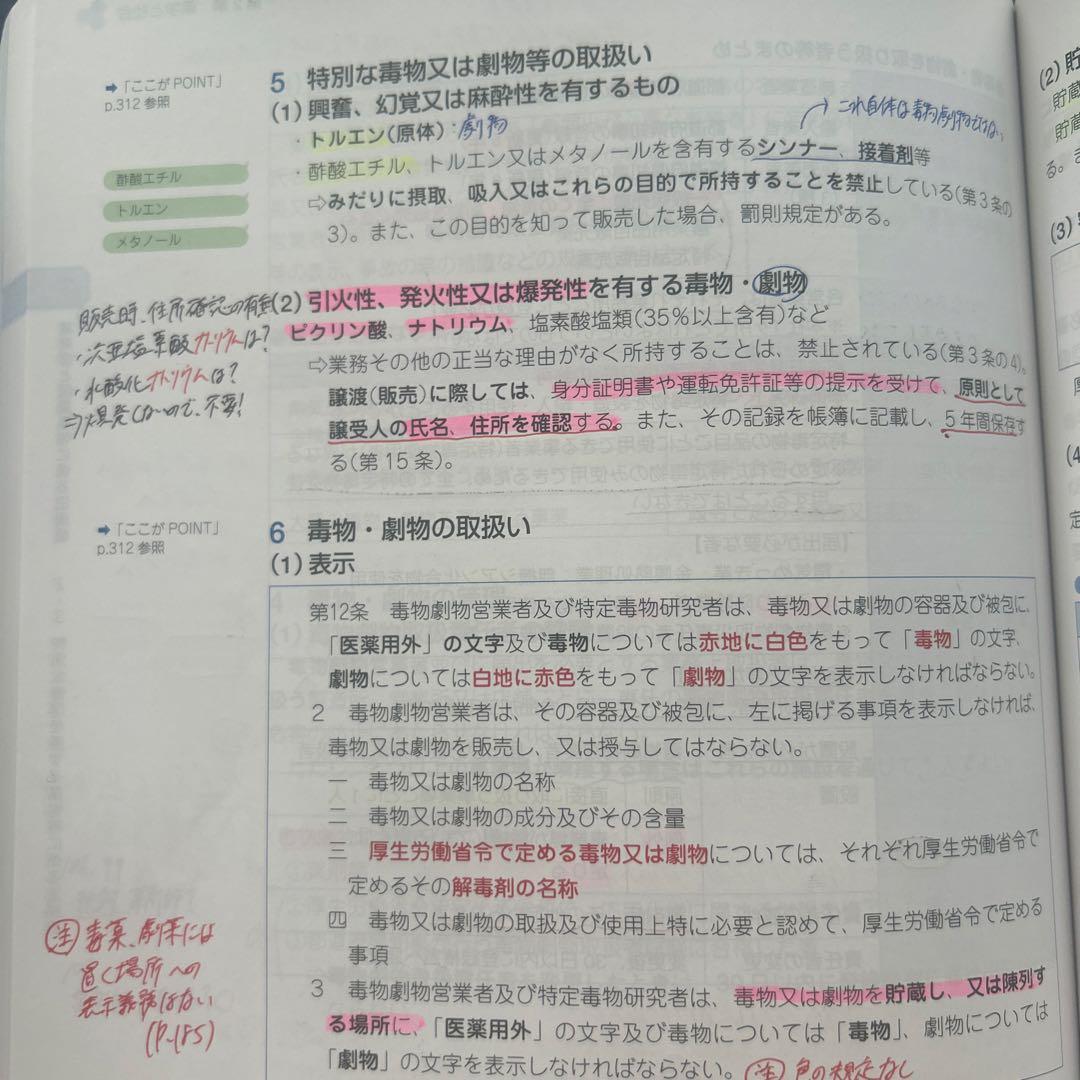 5 特別な毒物又は劇物等の取扱い
➡「ここがPOINT」
p.312 参照
(1) 興奮、幻覚又は麻酔性を有するもの
・トルエン(原体):劇物
→これ自体は毒物劇物ではない
・酢酸エチル、トルエン又はメタノールを含有するシンナー、接着剤等
酢酸エチル
トルエン
メタノール
⇨みだりに摂取、吸入又はこれらの目的で所持することを禁止している(第3条の
3)。また、この目的を知って販売した場合、罰則規定がある。
(2) 引火性、発火性又は爆発性を有する毒物・劇物
ピクリン酸、ナトリウム、塩素酸塩類(35%以上含有)など
⇨業務その他の正当な理由がなく所持することは、禁止されている(第3条の4)。
譲渡(販売)に際しては、身分証明書や運転免許証等の提示を受けて、原則として
譲受人の氏名、住所を確認する。また、その記録を帳簿に記載し、5年間保存す
る(第15条)。
販売時、住所確認の有無
・次亜塩素酸カリウムは?
・水酸化ナトリウムは?
⇒爆発しないので、不要!
6 毒物・劇物の取扱い
➡「ここがPOINT」
p.312 参照
(1) 表示
第12条 毒物劇物営業者及び特定毒物研究者は、毒物又は劇物の容器及び被包に、
「医薬用外」の文字及び毒物については赤地に白色をもって「毒物」の文字、
劇物については白地に赤色をもって「劇物」の文字を表示しなければならない。
2 毒物劇物営業者は、その容器及び被包に、左に掲げる事項を表示しなければ、
毒物又は劇物を販売し、又は授与してはならない。
一 毒物又は劇物の名称
二 毒物又は劇物の成分及びその含量
三 厚生労働省令で定める毒物又は劇物については、それぞれ厚生労働省令で
定めるその解毒剤の名称
四 毒物又は劇物の取扱及び使用上特に必要と認めて、厚生労働省令で定める
事項
3 毒物劇物営業者及び特定毒物研究者は、毒物又は劇物を貯蔵し、又は陳列す
る場所に、「医薬用外」の文字及び毒物については「毒物」、劇物については
「劇物」の文字を表示しなければならない。
注 色の規定なし
注 毒薬、劇薬には
置く場所への
表示義務はない
(P.185)
(2) 貯
貯蔵
貯蔵
る。
(3)
(4)
定